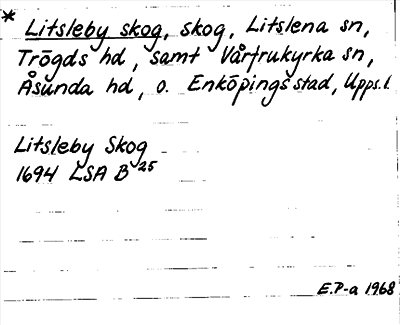 * Litsleby skog, skog, Litslena sn,
Trögds hd, samt Vårfrukyrka sn,
Åsunda hd, o. Enköpings stad, Upps. l.
Litsleby Skog
1694 LSA B 25
E.P-a 1968